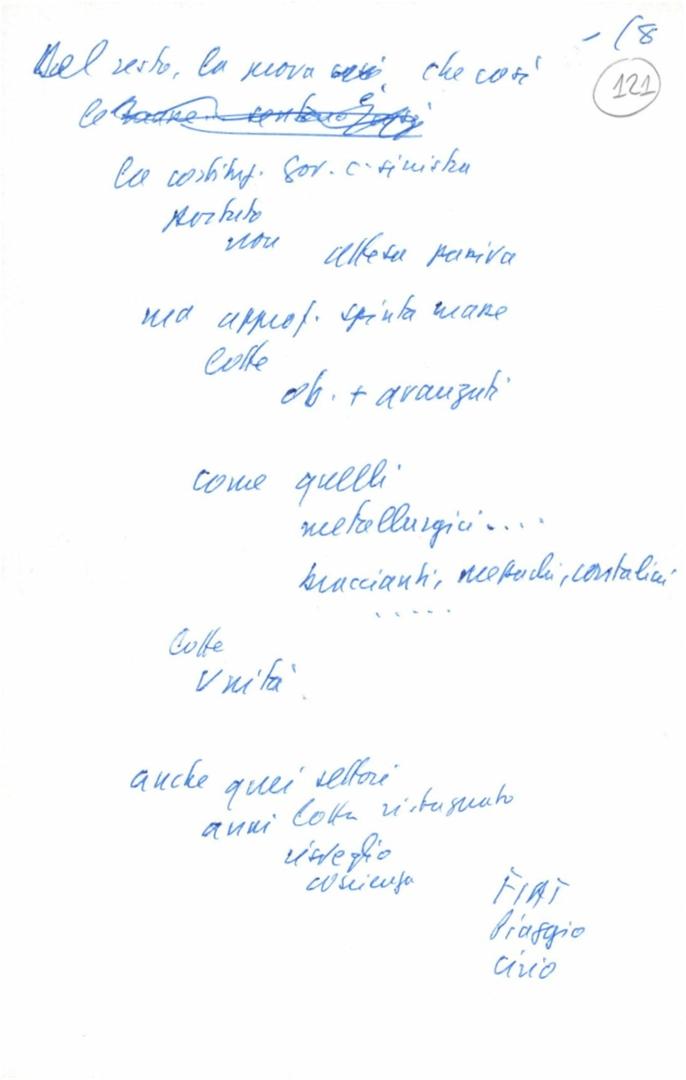 - 18
121
Del resto, la prova è che così
la costituz. Gov. c. sinistra
portato
non attesa passiva
ma approf. spinta masse
lotte
ob. + avanzati
come quelli
metallurgici....
braccianti, mezzadri, contadini
.....
lotte
Unità
anche quei settori
anni lotta ristagnato
risveglio
coscienza
FIAT
Piaggio
Cirio